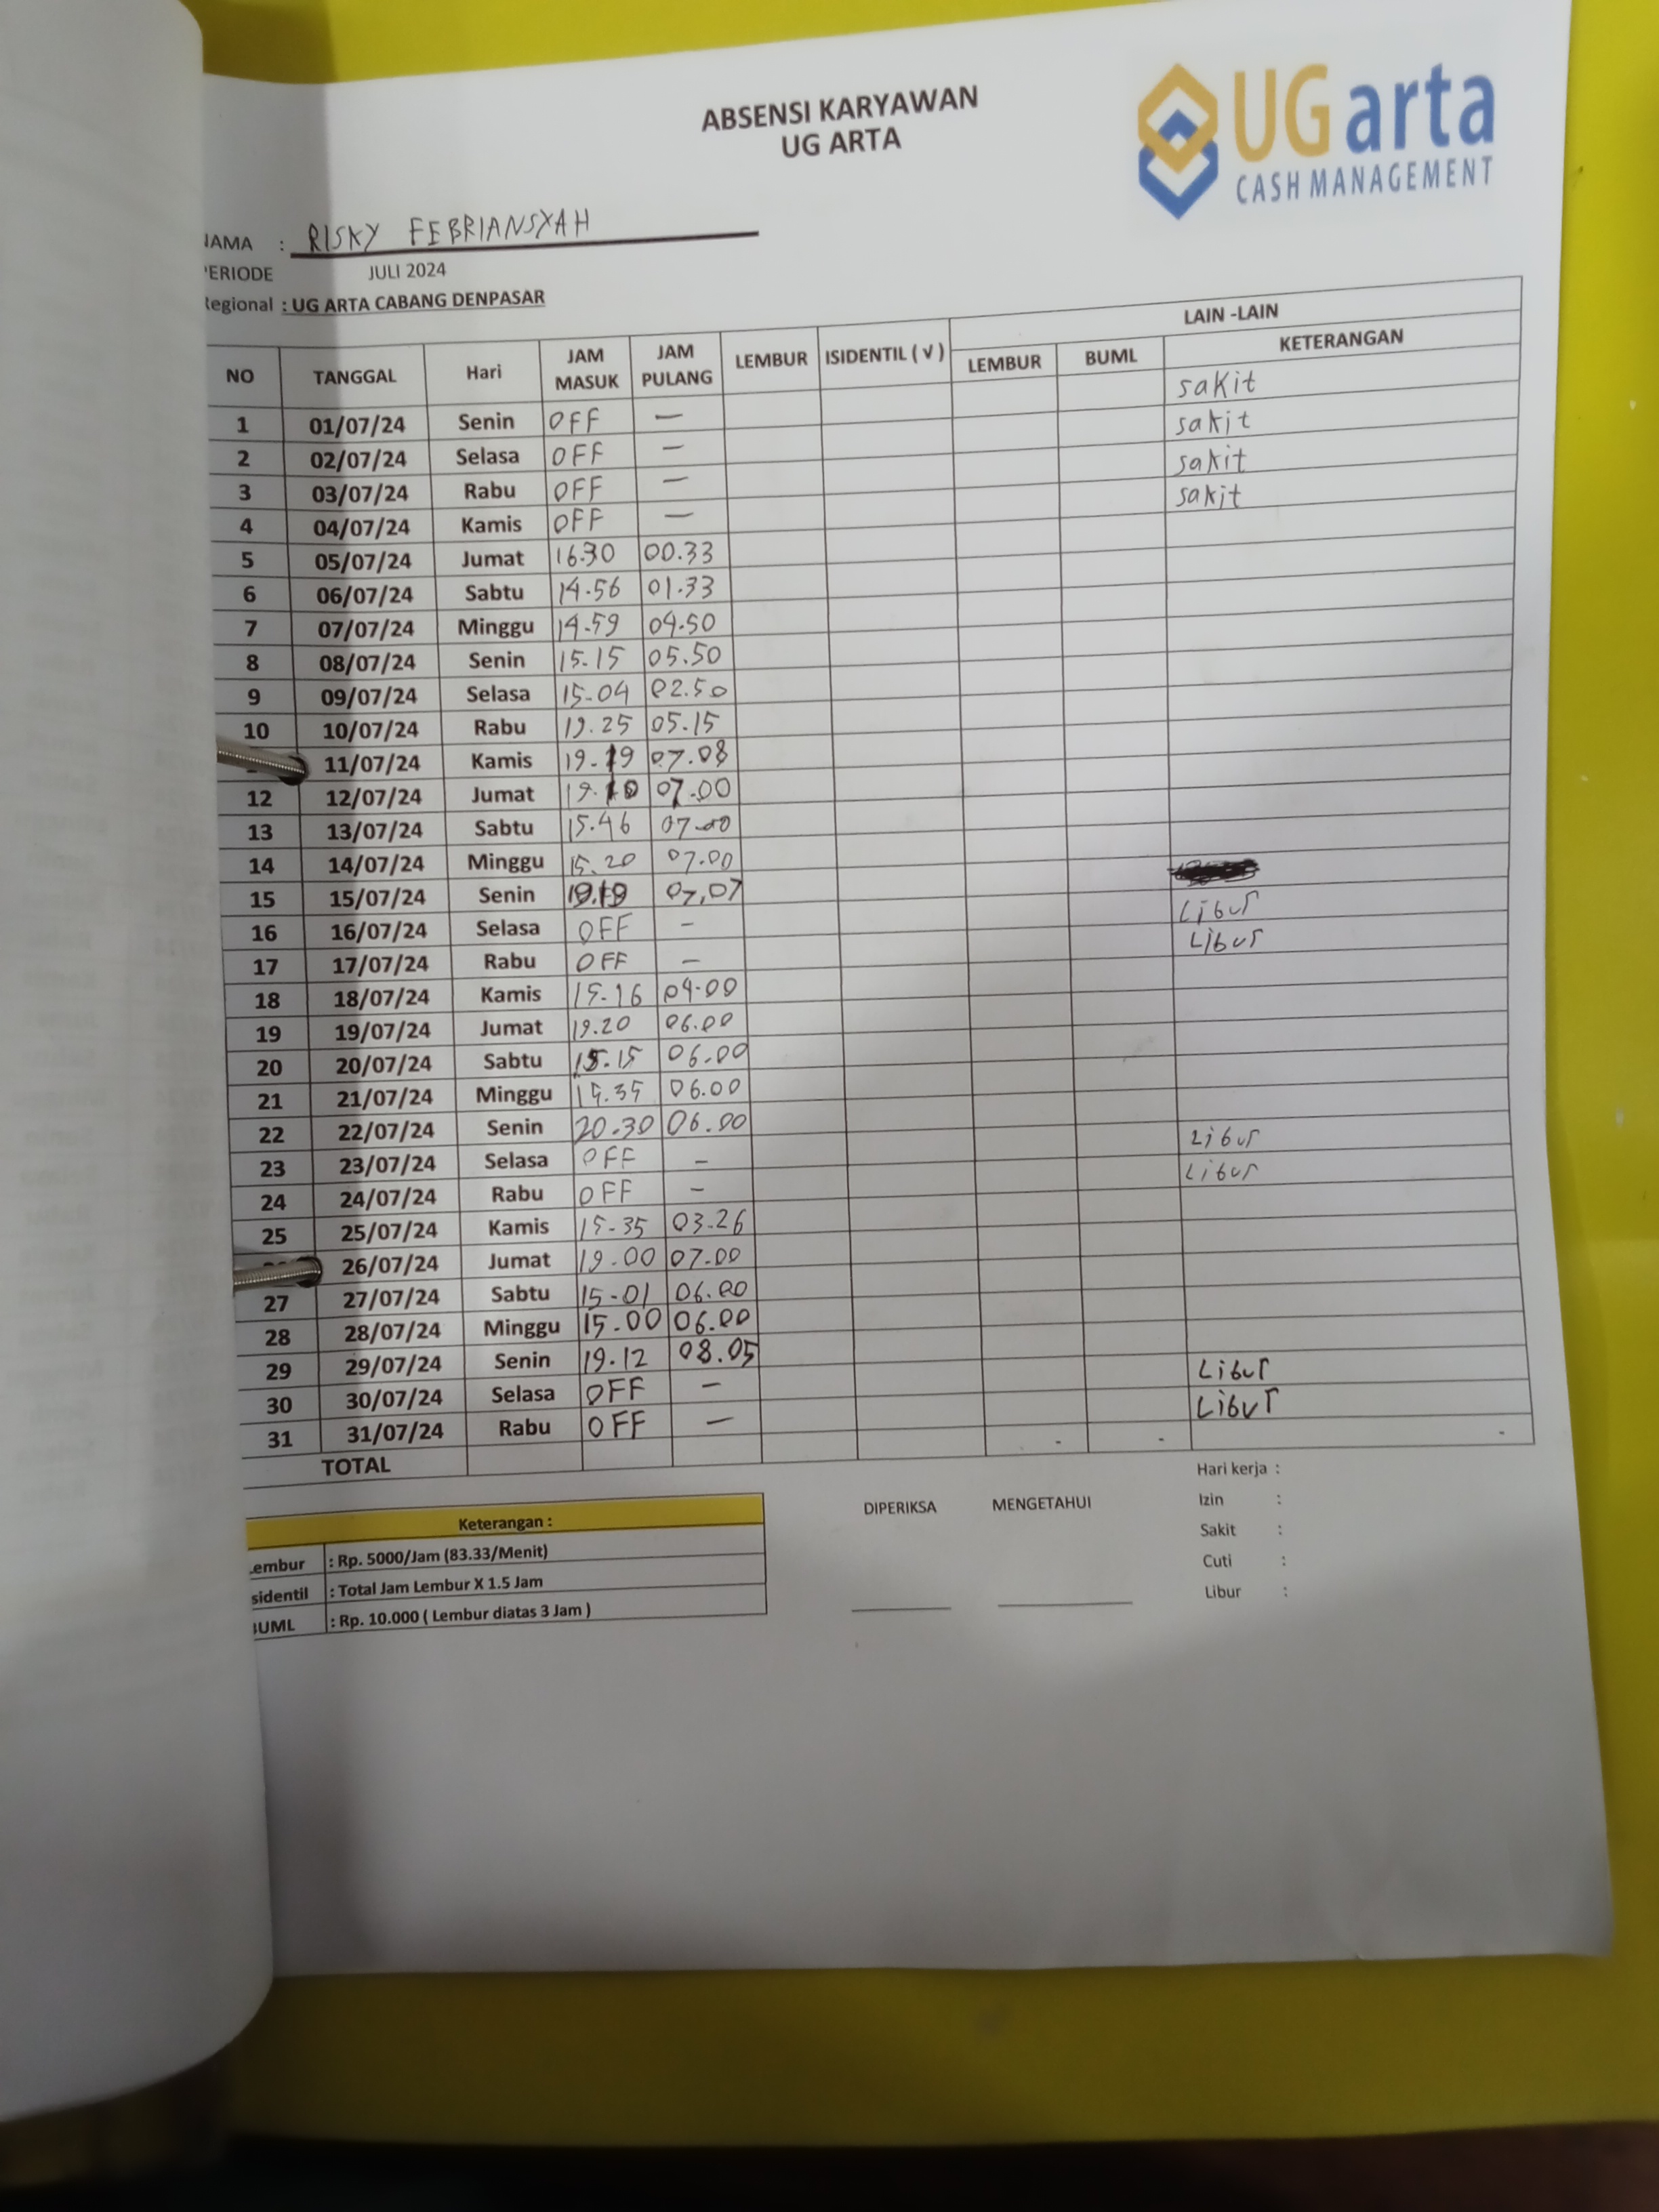 ABSENSI KARYAWAN
UG ARTA
UG arta
CASH MANAGEMENT
NAMA : RISKY FEBRIANSYAH
PERIODE JULI 2024
Regional : UG ARTA CABANG DENPASAR
NO TANGGAL Hari JAM MASUK JAM PULANG LEMBUR ISIDENTIL ( √ ) LAIN -LAIN
LEMBUR BUML KETERANGAN
1 01/07/24 Senin OFF — sakit
2 02/07/24 Selasa OFF — sakit
3 03/07/24 Rabu OFF — sakit
4 04/07/24 Kamis OFF — sakit
5 05/07/24 Jumat 16.30 00.33
6 06/07/24 Sabtu 14.56 01.33
7 07/07/24 Minggu 14.59 04.50
8 08/07/24 Senin 15.15 05.50
9 09/07/24 Selasa 15-04 02.50
10 10/07/24 Rabu 19.25 05.15
11/07/24 Kamis 19.19 07.08
12 12/07/24 Jumat 19.10 07.00
13 13/07/24 Sabtu 15.46 07.00
14 14/07/24 Minggu 15.20 07.00
15 15/07/24 Senin 07,07
16 16/07/24 Selasa OFF – Libur
17 17/07/24 Rabu OFF – Libur
18 18/07/24 Kamis 15-16 04.00
19 19/07/24 Jumat 19.20 06.00
20 20/07/24 Sabtu 15.15 06.00
21 21/07/24 Minggu 15.35 06.00
22 22/07/24 Senin 20.30 06.00
23 23/07/24 Selasa OFF – Libur
24 24/07/24 Rabu OFF – Libur
25 25/07/24 Kamis 15-35 03.26
26/07/24 Jumat 19.00 07.00
27 27/07/24 Sabtu 15-01 06.00
28 28/07/24 Minggu 15.00 06.00
29 29/07/24 Senin 19.12 08.05
30 30/07/24 Selasa OFF — Libur
31 31/07/24 Rabu OFF — Libur
TOTAL - - -
Keterangan :
Lembur : Rp. 5000/Jam (83.33/Menit)
Isidentil : Total Jam Lembur X 1.5 Jam
BUML : Rp. 10.000 ( Lembur diatas 3 Jam )
DIPERIKSA MENGETAHUI
Hari kerja :
Izin :
Sakit :
Cuti :
Libur :